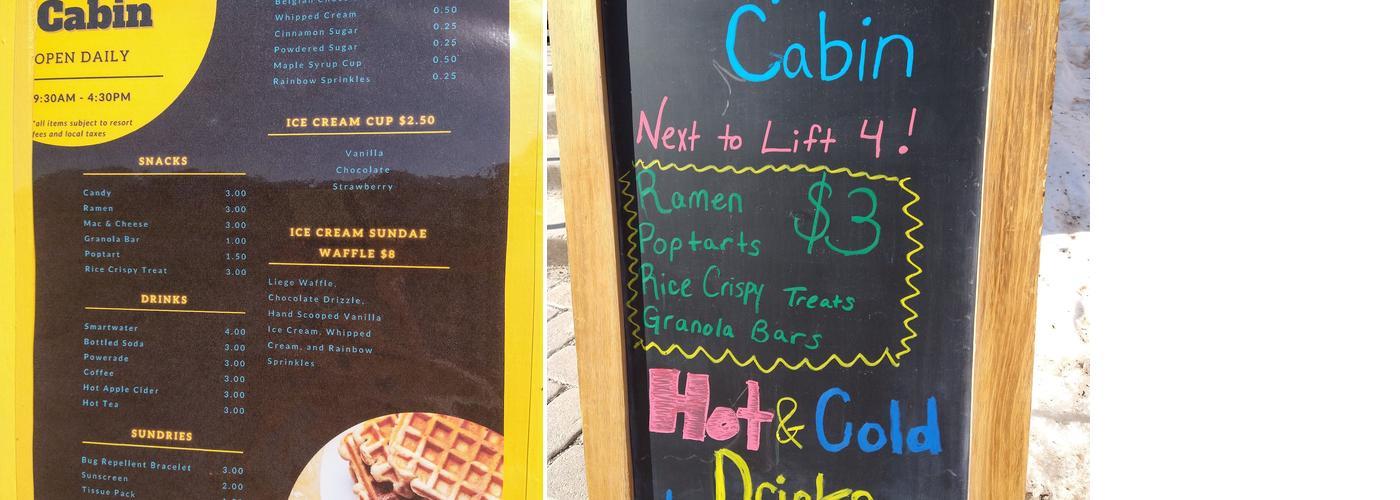 Cabin
OPEN DAILY
9:30AM - 4:30PM
*all items subject to resort
fees and local taxes
SNACKS
Candy 3.00
Ramen 3.00
Mac & Cheese 3.00
Granola Bar 1.00
Poptart 1.50
Rice Crispy Treat 3.00
DRINKS
Smartwater 4.00
Bottled Soda 3.00
Powerade 3.00
Coffee 3.00
Hot Apple Cider 3.00
Hot Tea 3.00
SUNDRIES
Bug Repellent Bracelet 3.00
Sunscreen 2.00
Tissue Pack
Belgian
Whipped Cream 0.50
Cinnamon Sugar 0.25
Powdered Sugar 0.25
Maple Syrup Cup 0.50
Rainbow Sprinkles 0.25
ICE CREAM CUP $2.50
Vanilla
Chocolate
Strawberry
ICE CREAM SUNDAE
WAFFLE $8
Liege Waffle,
Chocolate Drizzle,
Hand Scooped Vanilla
Ice Cream, Whipped
Cream, and Rainbow
Sprinkles
Cabin
Next to Lift 4!
Ramen $3
Poptarts
Rice Crispy Treats
Granola Bars
Hot & Cold
Drinks